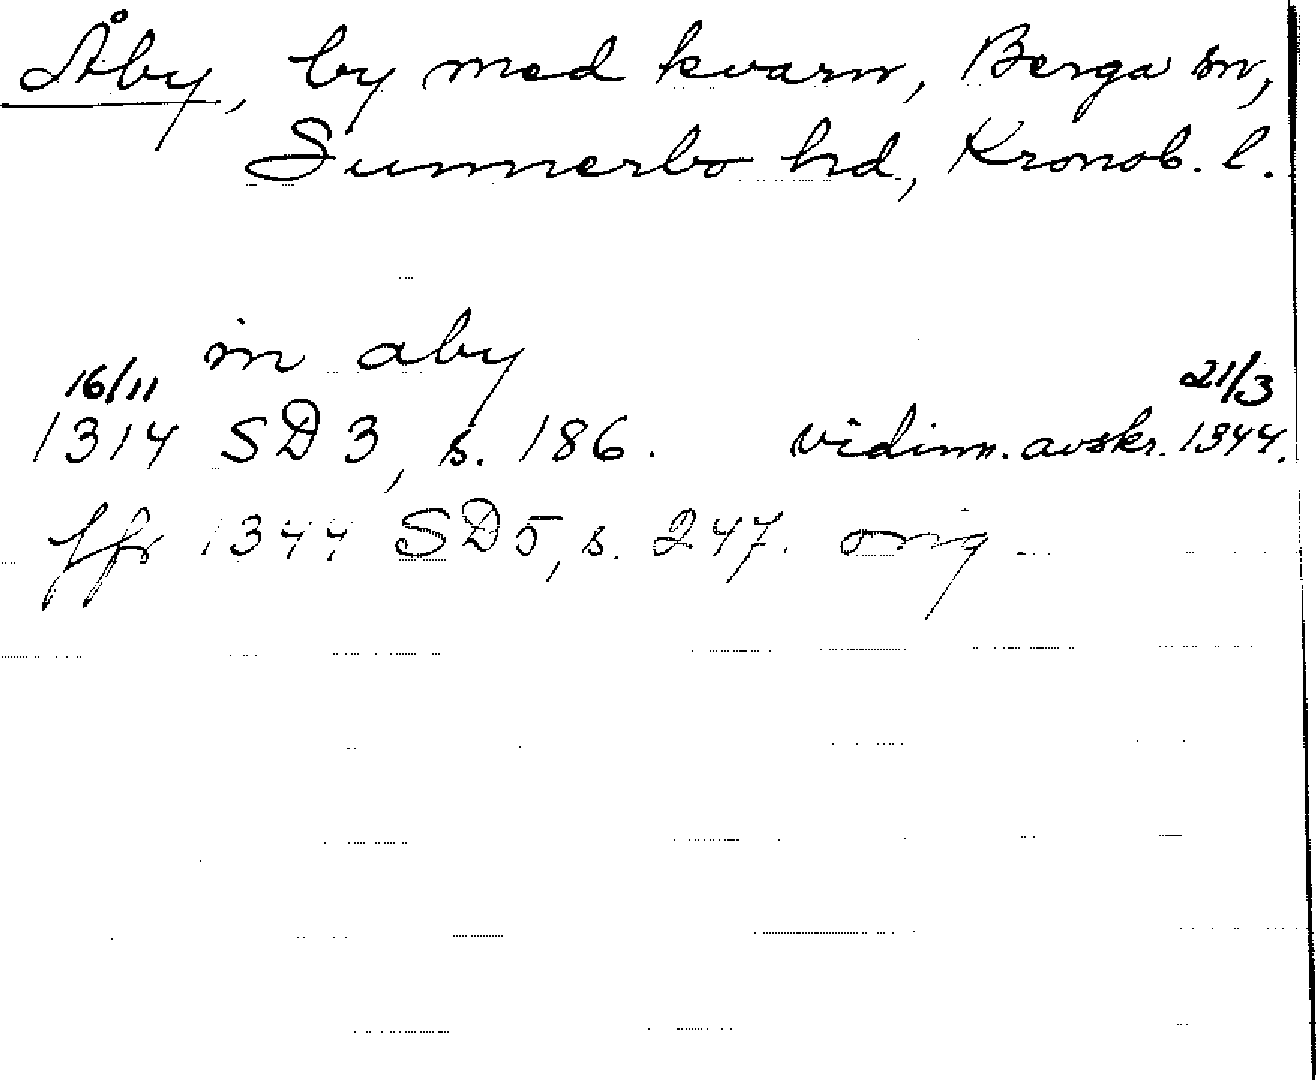 Åby, by med kvarn, Berga sn,
Sunnerbo hd, Kronob. l.
in aby
16/11 21/3
1314 SD 3, s. 186. vidim. avskr. 1344.
jfr 1344 SD 5, s. 247. orig